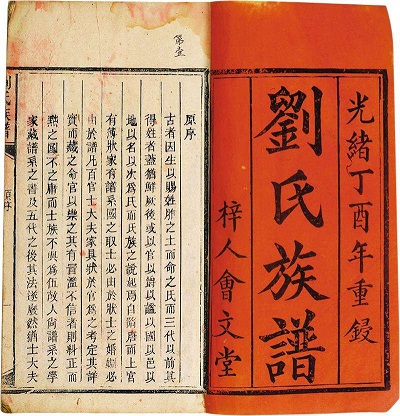 光緒丁酉年重鋟
劉氏族譜
梓人會文堂
第壹
原序
古者因生以賜姓胙之土而命之氏而三代以前其
得姓者蓋猶鮮厥後或以官以以謚以國以邑以
地以名以次爲氏而氏族之說起焉自隋唐而上官
有簿狀家有譜系國之取士必由於狀士之婚姻必
由於譜凡百官士大夫家具狀於官爲之考定其詳
實而藏之命官以掌之其有冒濫不信者則糾正而
之國不而士族不與爲伍故人尚譜系之學
家藏譜系之書及五代之後其法遂廢然猶士大夫
劉氏族譜
原序